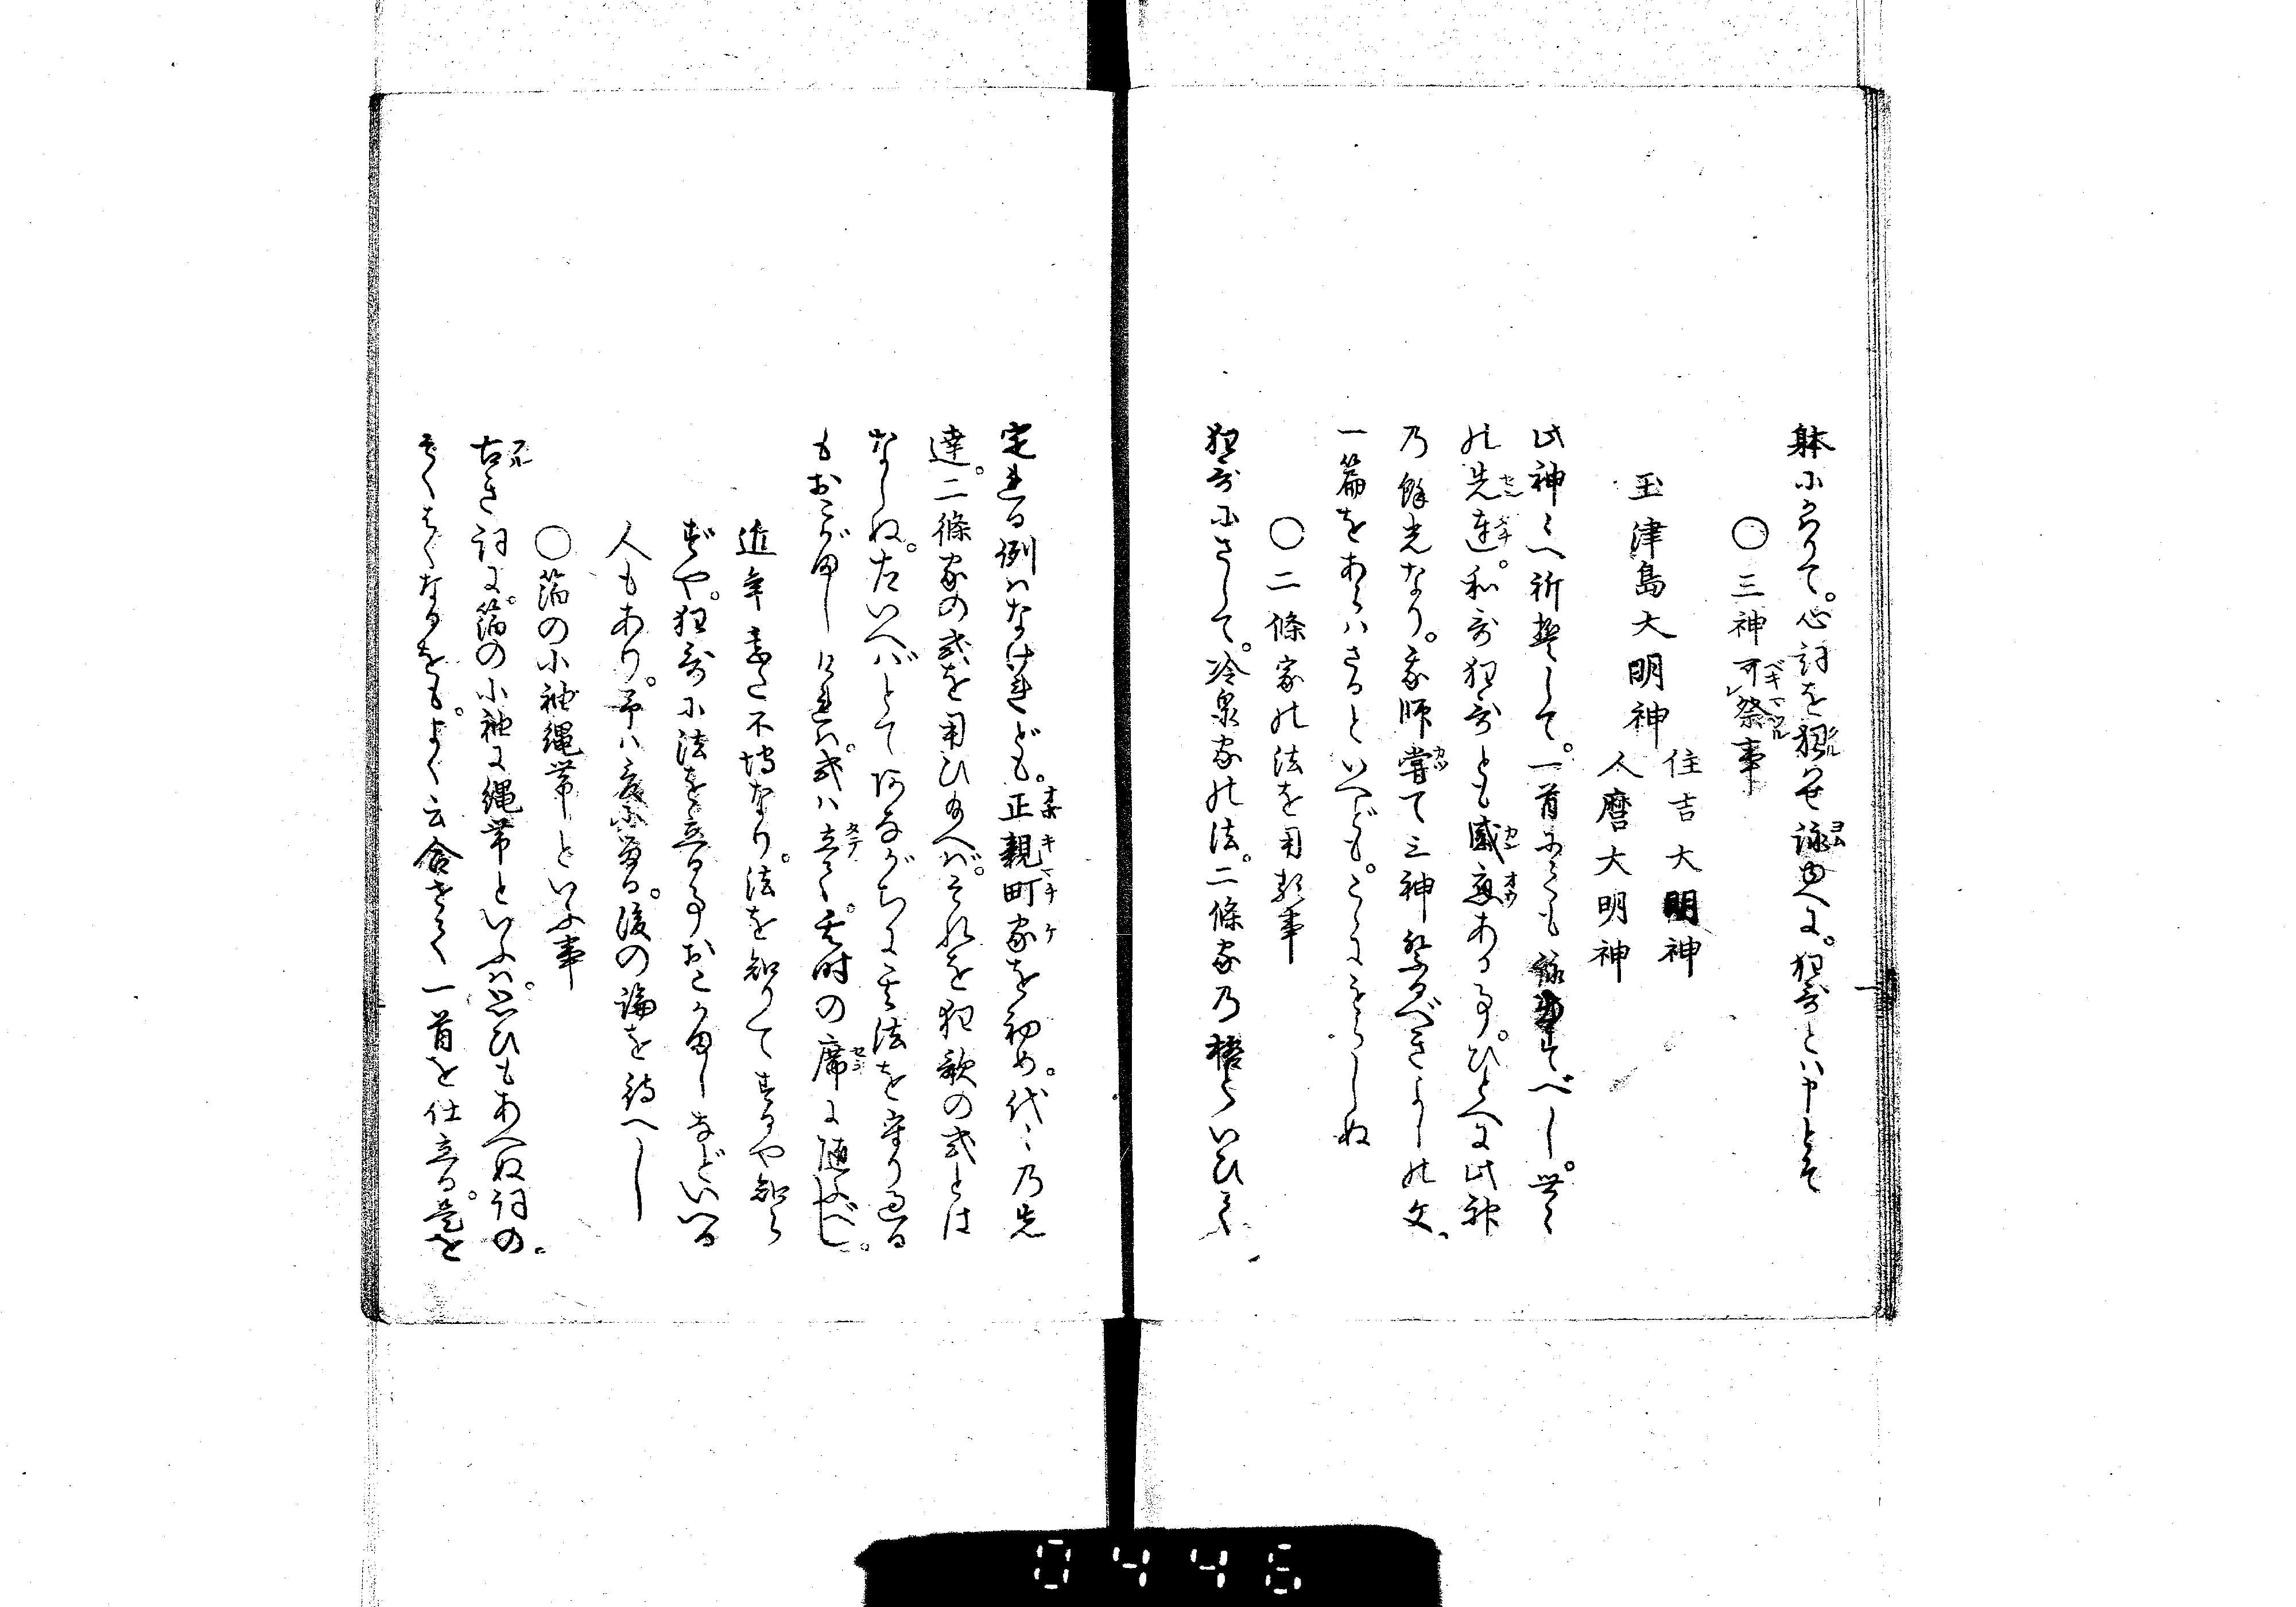 躰にかりて。心詞を狂はせ詠むゆへに。狂哥とハ申とそ
〇三神可祭事
住吉大明神
玉津島大明神
人麿大明神
此神々へ祈誓して。一首にても詠出すべし。世々
の先達。和哥狂哥とも感應ある事。ひとへに此神
乃餘光なり。家師嘗て三神祭るべきよしの文
一篇をあらハさるといへども。こゝにもらしぬ
〇二條家の法を用る事
狂哥にさして。冷泉家の法。二條家乃格といひて
定れる例ハなけれども。正親町家を初め。代々乃先
達。二條家の式を用ひ給へば。それを狂歌の式とは
なしぬ。左いへばとてあながちに其法を守り過る
もおこがましけれバ。式ハ立て。其時の席に随ふべし。
近年書之不埒なり。法を知りてするや知ら
ずや。狂哥に法を立る事おこがましなどいへる
人もあり。予ハ爰に畧る。後の論を待へし
〇箔の小袖縄帯といふ事
古き詞に。箔の小袖に縄帯といふハ。思ひもあへぬ詞の。
そくはくなるをも。よく云合せて一首を仕立る。是を
0446